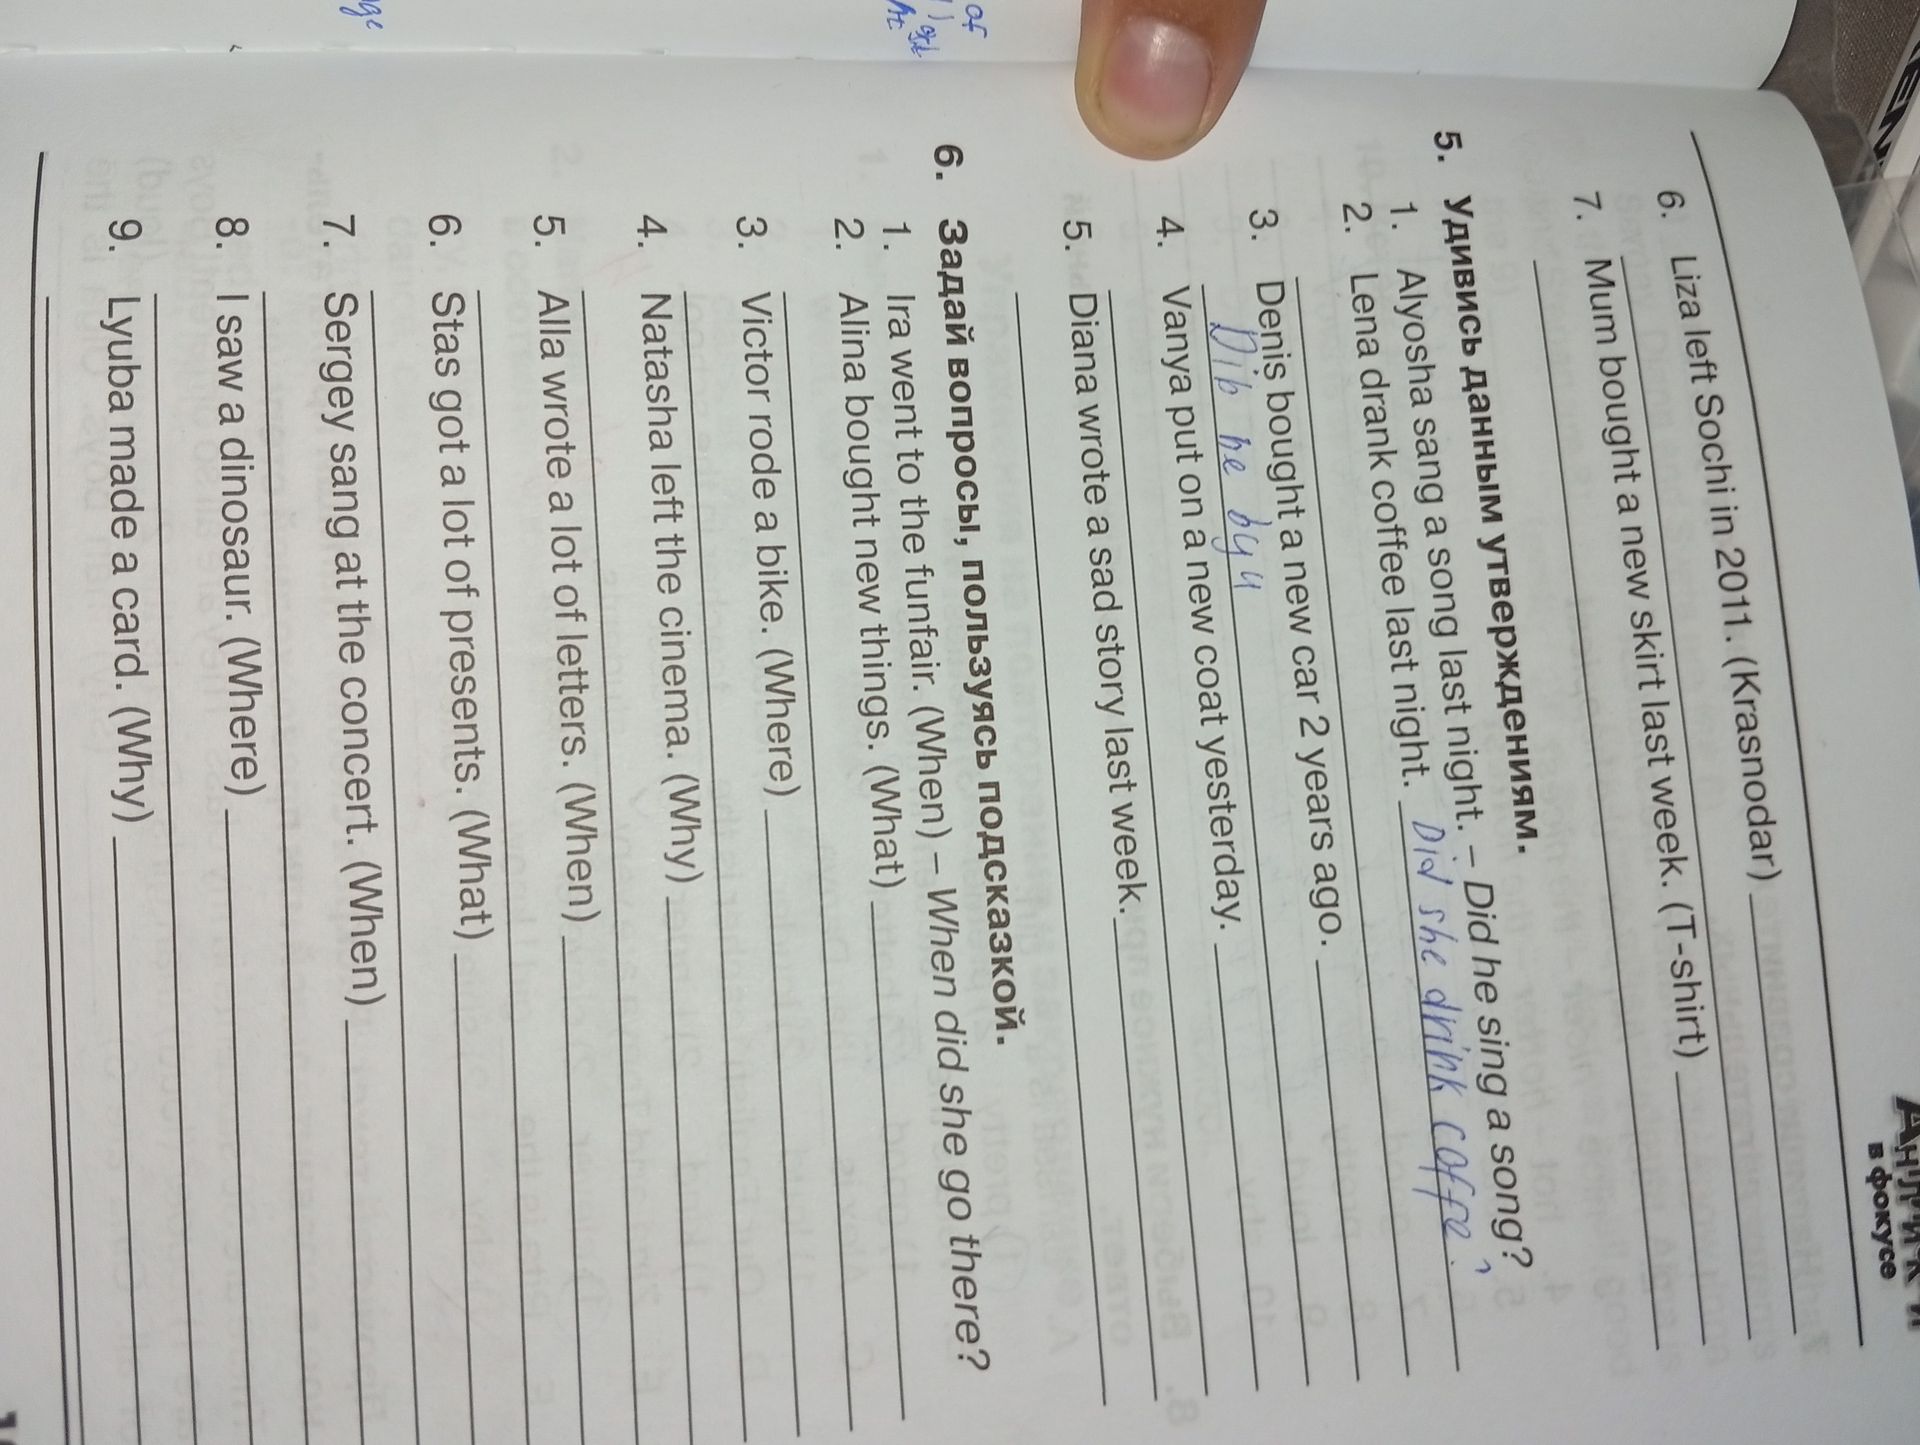 Английский
в фокусе
6. Liza left Sochi in 2011. (Krasnodar)
7. Mum bought a new skirt last week. (T-shirt)
5. Удивись данным утверждениям.
1. Alyosha sang a song last night. – Did he sing a song?
2. Lena drank coffee last night. Did she drink coffe.?
3. Denis bought a new car 2 years ago.
Dib he by
4. Vanya put on a new coat yesterday.
5. Diana wrote a sad story last week.
6. Задай вопросы, пользуясь подсказкой.
1. Ira went to the funfair. (When) – When did she go there?
2. Alina bought new things. (What)
3. Victor rode a bike. (Where)
4. Natasha left the cinema. (Why)
5. Alla wrote a lot of letters. (When)
6. Stas got a lot of presents. (What)
7. Sergey sang at the concert. (When)
8. I saw a dinosaur. (Where)
9. Lyuba made a card. (Why)
of